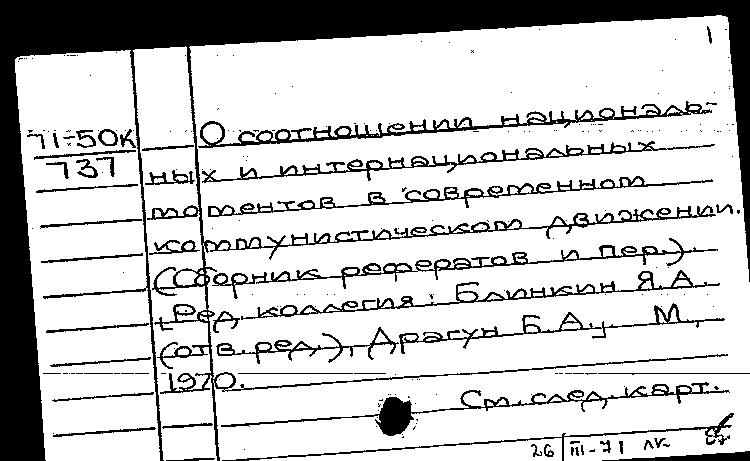 1
71-50К
737
О соотношении националь-
ных и интернациональных
моментов в современном
коммунистическом движении.
(Сборник рефератов и пер.).
[Ред. коллегия: Блинкин Я.А.
(отв. ред.), Драгун Б.А.] М.,
1970.
См. след. карт.
26 | III-71 лк